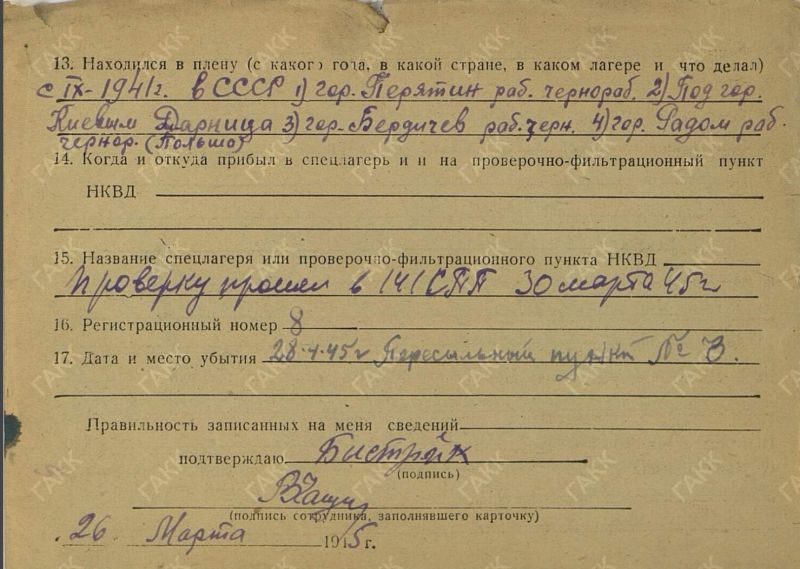 13. Находился в плену (с какого года, в какой стране, в каком лагере и что делал)
с IX-1941г. в СССР 1) гор. Перятин раб. чернораб. 2) Под гор.
Киевым Дарница 3) гор. Бердичев раб. черн. 4) гор. Радом раб.
чернор. (Польша)
14. Когда и откуда прибыл в спецлагерь и и на проверочно-фильтрационный пункт
НКВД
15. Название спецлагеря или проверочно-фильтрационного пункта НКВД
Проверку прошел в 141 СПП 30 марта 45 г
16. Регистрационный номер 8
17. Дата и место убытия 28.4.45 г Пересыльный пункт № 3.
Правильность записанных на меня сведений
подтверждаю
(подпись)
(подпись сотрудника, заполнявшего карточку)
26 Марта 1945 г.
ГАКК